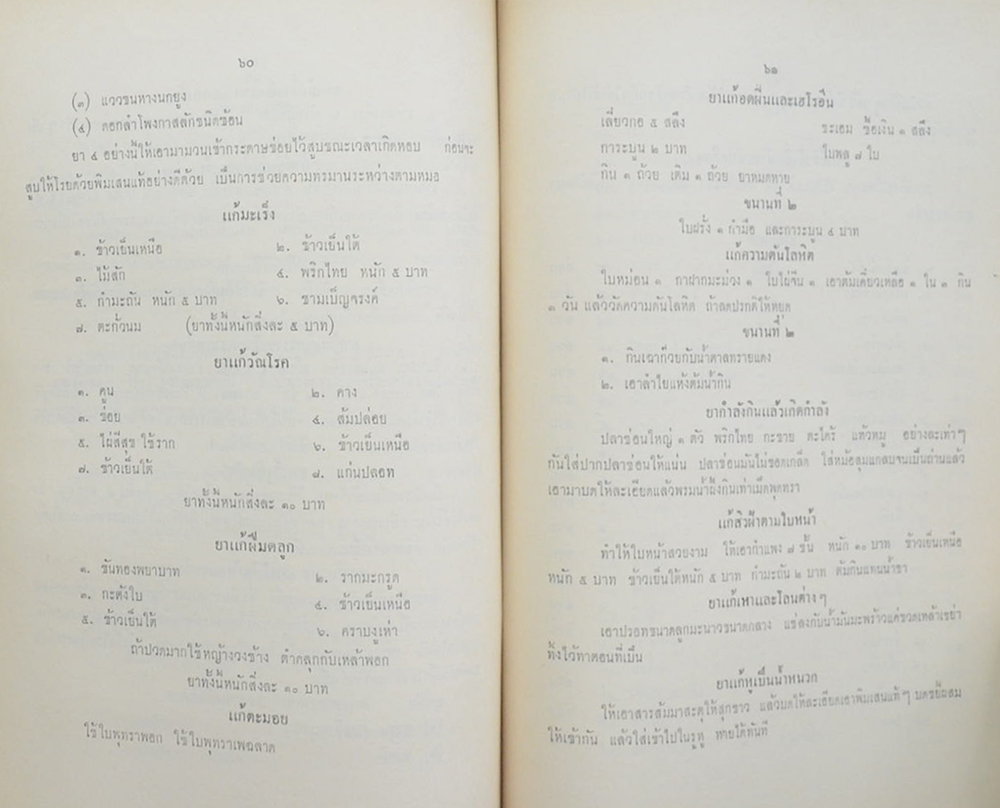 ๖๐
(๓) แววขนหางนกยูง
(๔) ดอกลำโพงกาสลักชนิดซ้อน
ยา ๔ อย่างนี้ให้เอามามวนเข้ากระดาษข่อยไว้สูบขณะเวลาเกิดหอบ ก่อนจะ
สูบให้โรยด้วยพิมเสนแท้อย่างดีด้วย เป็นการช่วยความทรมานระหว่างตามหมอ
แก้มะเร็ง
๑. ข้าวเย็นเหนือ ๒. ข้าวเย็นใต้
๓. ไม้สัก ๔. พริกไทย หนัก ๕ บาท
๕. กำมะถัน หนัก ๕ บาท ๖. ชามเบ็ญจรงค์
๗. ตะกั่วนม (ยาทั้งนี้หนักสิ่งละ ๕ บาท)
ยาแก้วัณโรค
๑. คูน ๒. คาง
๓. ข่อย ๔. ส้มปล่อย
๕. ไผ่สีสุข ใช้ราก ๖. ข้าวเย็นเหนือ
๗. ข้าวเย็นใต้ ๘. แก่นปลอท
ยาทั้งนี้หนักสิ่งละ ๑๐ บาท
ยาแก้ฝีมดลูก
๑. ขันทองพยาบาท ๒. รากมะกรูด
๓. กะตังใบ ๔. ข้าวเย็นเหนือ
๕. ข้าวเย็นใต้ ๖. คราบงูเห่า
ถ้าปวดมากใช้หญ้างวงช้าง ตำคลุกกับเหล้าพอก
ยาทั้งนี้หนักสิ่งละ ๑๐ บาท
แก้ตะมอย
ใช้ใบพุทราพอก ใช้ใบพุทราเพฉลาด
๖๑
ยาแก้อดฝิ่นและเฮโรอีน
เลี่ยวกอ ๕ สลึง ชะเอม ซื้อเงิน ๑ สลึง
การะบูน ๒ บาท ใบพลู ๗ ใบ
กิน ๑ ถ้วย เติม ๑ ถ้วย ยาหมดหาย
ขนานที่ ๒
ใบฝรั่ง ๑ กำมือ และการะบูน ๔ บาท
แก้ความดันโลหิต
ใบหม่อน ๑ กาฝากมะม่วง ๑ ใบไผ่จีน ๑ เอาต้มเคี่ยวเหลือ ๑ ใน ๓ กิน
๓ วัน แล้ววัดความดันโลหิต ถ้าลดปรกติให้หยุด
ขนานที่ ๒
๑. กินเฉาก๊วยกับน้ำตาลทรายแดง
๒. เอาลำใยแห้งต้มน้ำกิน
ยากำลังกินแล้วเกิดกำลัง
ปลาช่อนใหญ่ ๑ ตัว พริกไทย กะชาย ตะไคร้ แห้วหมู อย่างละเท่าๆ
กันใส่ปากปลาช่อนให้แน่น ปลาช่อนมันไม่ขอดเกล็ด ใส่หม้อสุมแกลบจนเป็นถ่านแล้ว
เอามาบดให้ละเอียดแล้วพรมน้ำผึ้งกินเท่าเม็ดพุดทรา
แก้สิวฝ้าตามใบหน้า
ทำให้ใบหน้าสวยงาม ให้เอากำแพง ๗ ชั้น หนัก ๑๐ บาท ข้าวเย็นเหนือ
หนัก ๕ บาท ข้าวเย็นใต้หนัก ๕ บาท กำมะถัน ๒ บาท ต้มกินแทนน้ำชา
ยาแก้เหาและโลนต่างๆ
เอาปรอทขนาดลูกมะนาวขนาดกลาง แช่ลงกับน้ำมันมะพร้าวแค่ขวดเหล้าเขย่า
ทิ้งไว้ทาตอนที่เป็น
ยาแก้หูเป็นน้ำหนวก
ให้เอาสารส้มมาสะตุให้สุกขาว แล้วบดให้ละเอียดเอาพิมเสนแท้ๆ บดขยี้ผสม
ให้เข้ากัน แล้วใส่เข้าไปในรูหู หายได้ทันที